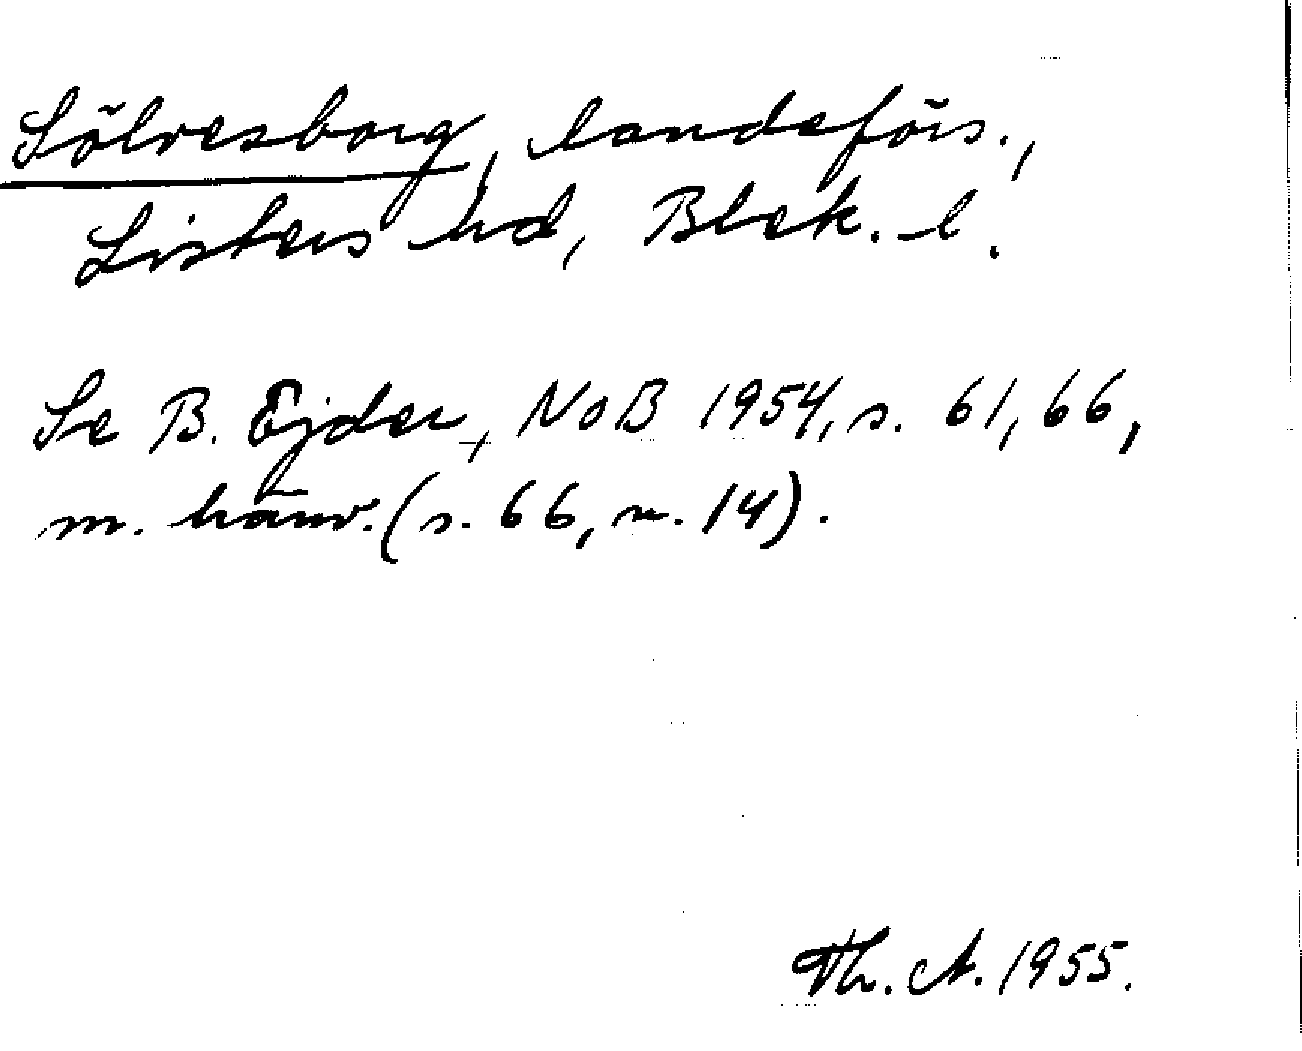 Sölvesborg, landsförs.,
Listers hd, Blek. l.
Se B. Ejder, NoB 1954, s. 61, 66,
m. hänv. (s. 66, n. 14).
Th. A. 1955.